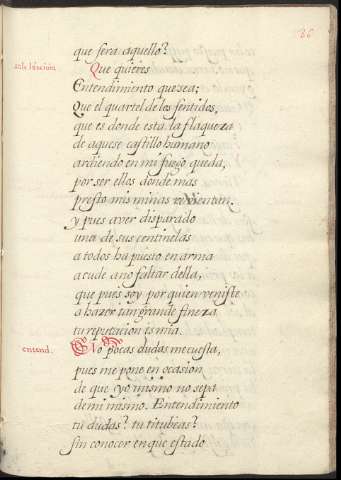 86
que sera aquello?
Que quieres
Entendimiento que sea;
Que el quartel de los sentidos,
que es donde esta la flaqueza
de aquese castillo humano
ardiendo en mi fuego queda,
por ser ellos donde mas
presto mis minas rebientan.
y pues aver disparado
una de sus centinelas
a todos ha puesto en arma
acude a no faltar della,
que pues soy por quien veniste
a hazer tan grande fineza
tu reputacion es mia.
entend. No pocas dudas me cuesta,
pues me pone en ocasion
de que yo mismo no sepa
de mi mismo. Entendimiento
tu dudas? tu titubeas?
sin conocer en que estado